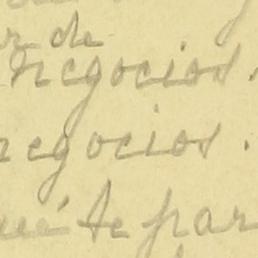 r de
negocios.
negocios.
qué te par